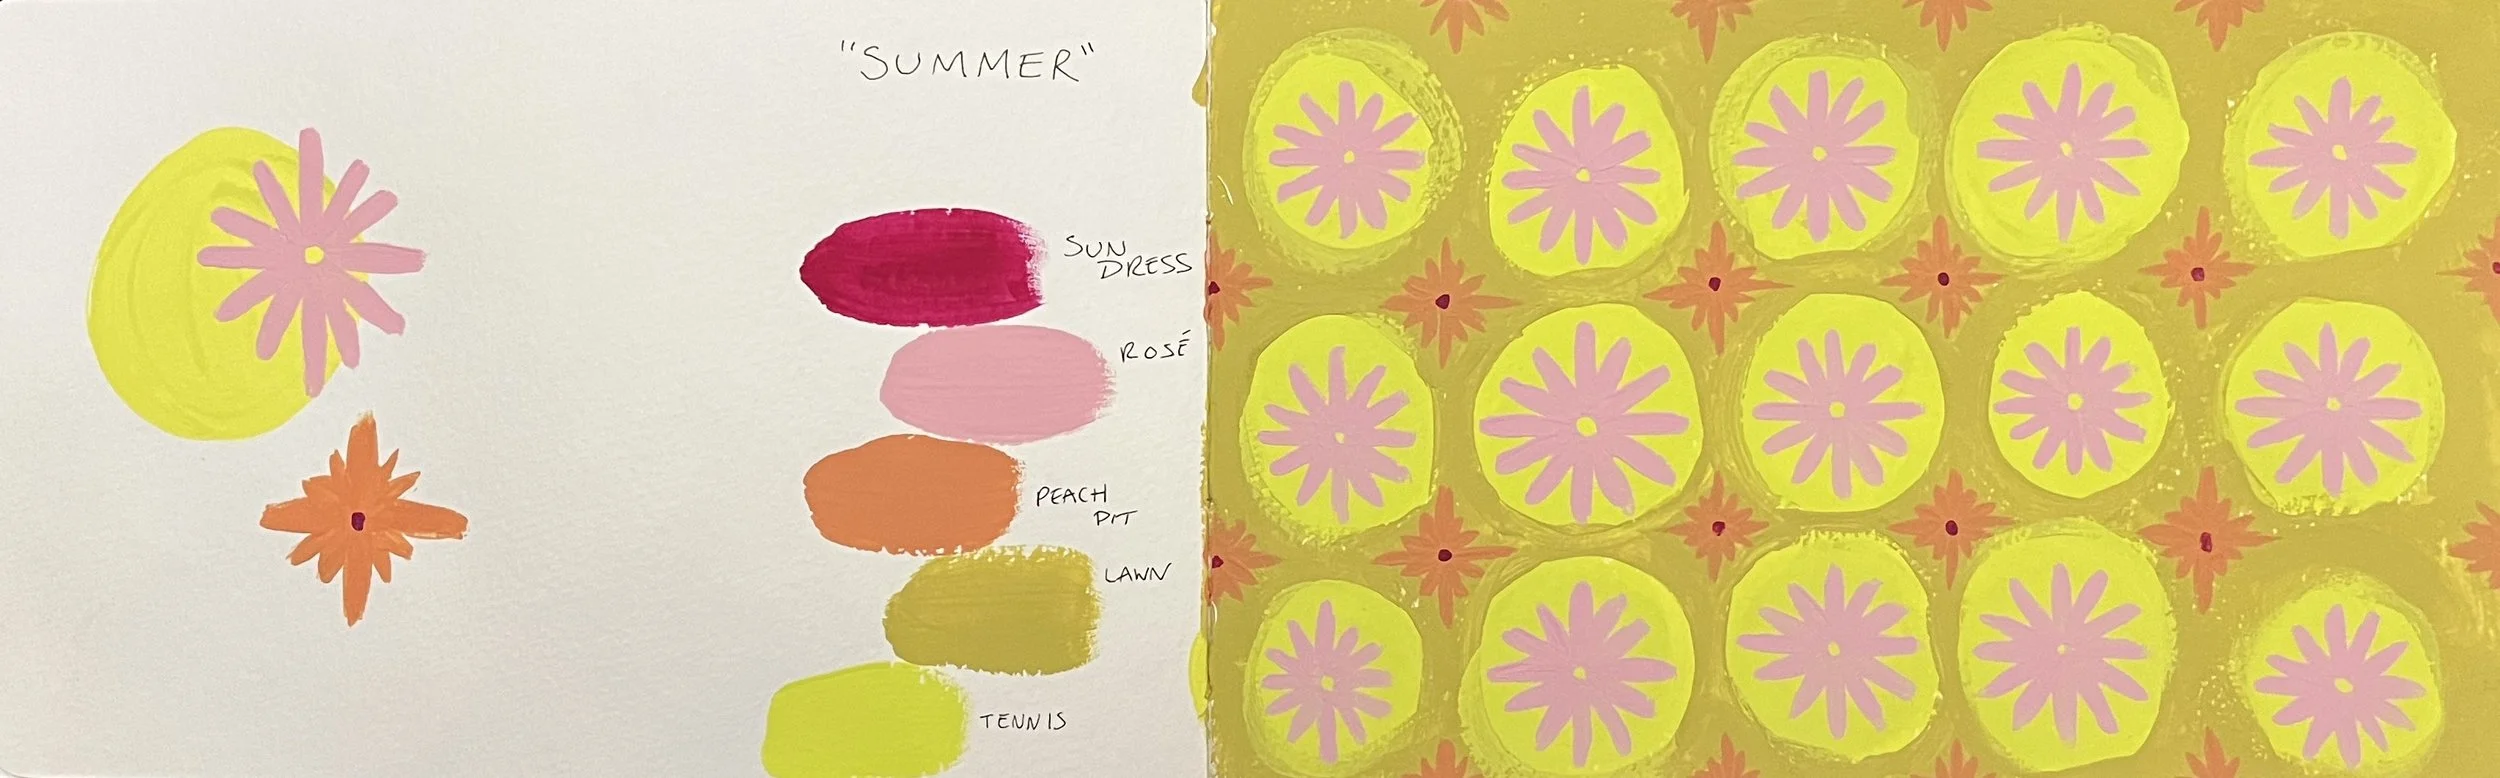 "SUMMER"
SUN
DRESS
ROSÉ
PEACH
PIT
LAWN
TENNIS